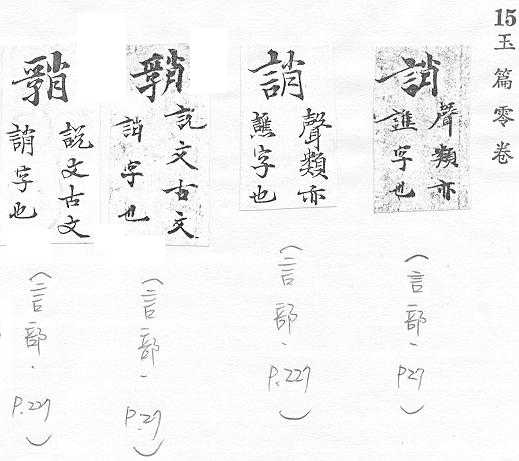 15玉篇零卷
誚
聲類亦
譙字也
（言部、P27）
誚
聲類亦
譙字也
（言部、P.227）
説文古文
誚字也
（言部、P.27）
説文古文
誚字也
（言部、P.227）